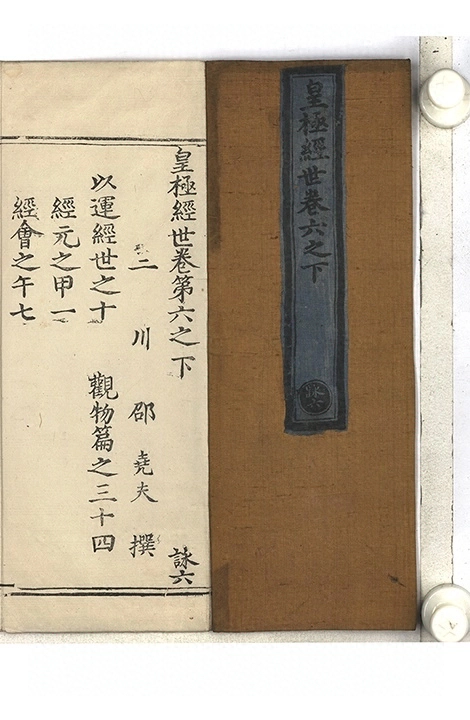 皇極經世卷六之下
詠六
皇極經世卷第六之下
詠六
二川 邵堯夫 撰
以運經世之十 觀物篇之三十四
經元之甲一
經會之午七